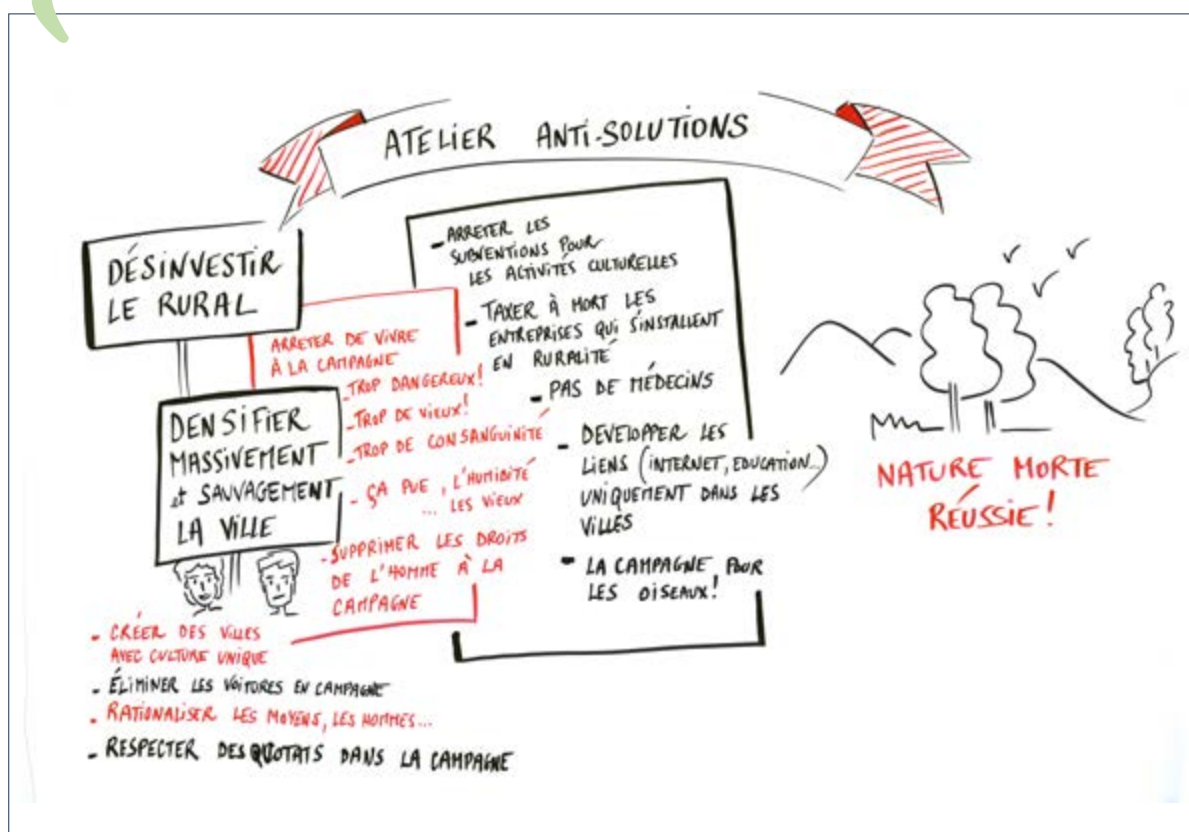 ATELIER ANTI-SOLUTIONS
DÉSINVESTIR
LE RURAL
DENSIFIER
MASSIVEMENT
et SAUVAGEMENT
LA VILLE
ARRETER DE VIVRE
À LA CAMPAGNE
-TROP DANGEREUX!
-TROP DE VIEUX!
-TROP DE CONSANGUINITÉ
- ÇA PUE, L'HUMIDITÉ
... LES VIEUX
-SUPPRIMER LES DROITS
DE L'HOMME À LA
CAMPAGNE
- ARRETER LES
SUBVENTIONS POUR
LES ACTIVITÉS CULTURELLES
- TAXER À MORT LES
ENTREPRISES QUI S'INSTALLENT
EN RURALITÉ
- PAS DE MÉDECINS
- DEVELOPPER LES
LIENS (INTERNET, EDUCATION...)
UNIQUEMENT DANS LES
VILLES
- LA CAMPAGNE POUR
LES OISEAUX!
- CRÉER DES VILLES
AVEC CULTURE UNIQUE
- ÉLIMINER LES VOITURES EN CAMPAGNE
- RATIONALISER LES MOYENS, LES HOMMES...
- RESPECTER DES QUOTATS DANS LA CAMPAGNE
NATURE MORTE
RÉUSSIE!